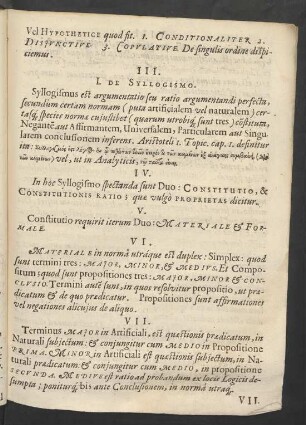 Vel HYPOTHETICE quod fit. 1. CONDITIONALITER 2.
DISJUNCTIVE 3. COPULATIVE. De singulis ordine dispi-
ciemus.
III.
I. DE SYLLOGISMO.
Syllogismus est argumentatio seu ratio argumentandi perfecta,
secundum certam normam (puta artificialem vel naturalem) cer-
tasq́, species norma cujuslibet (quarum utrobiq́, sunt tres) cōstitutā,
Negantē aut Affirmantem, Universalem, Particularem aut Singu-
larem conclusionem inferens. Aristoteli 1. Topic. cap. 1. definitur
vel, ut in Analyticis,
IV.
In hôc Syllogismo spectanda sunt Duo: CONSTITUTIO, &
CONSTITUTIONIS RATIO; quæ vulgò PROPRIETAS dicitur.
V.
Constitutio requirit iterum Duo: MATERIALE & FOR-
MALE.
VI.
MATERIALE in normâ utrâque est duplex: Simplex: quod
sunt termini tres: MAJOR, MINOR, & MEDIUS. Et Compo-
situm: quod sunt propositiones tres: MAJOR, MINOR & CON-
CLUSIO. Termini aut sunt, in quos resolvitur propositio, ut præ-
dicatum & de quo prædicatur. Propositiones sunt affirmationes
vel negationes alicujus de aliquo.
VII.
Terminus MAJOR in Artificiali, est quæstionis prædicatum, in
Naturali subjectum: & conjungitur cum MEDIO in Propositione
PRIMA. MINOR in Artificiali est quæstionis subjectum, in Na-
turali prædicatum: & conjungitur cum MEDIO, in propositione
SECUNDA. MEDIUS est ratio ad probandum ex locis Logicis de-
sumpta; poniturq́, bis ante Conclusionem, in normâ utraq́,
VII.